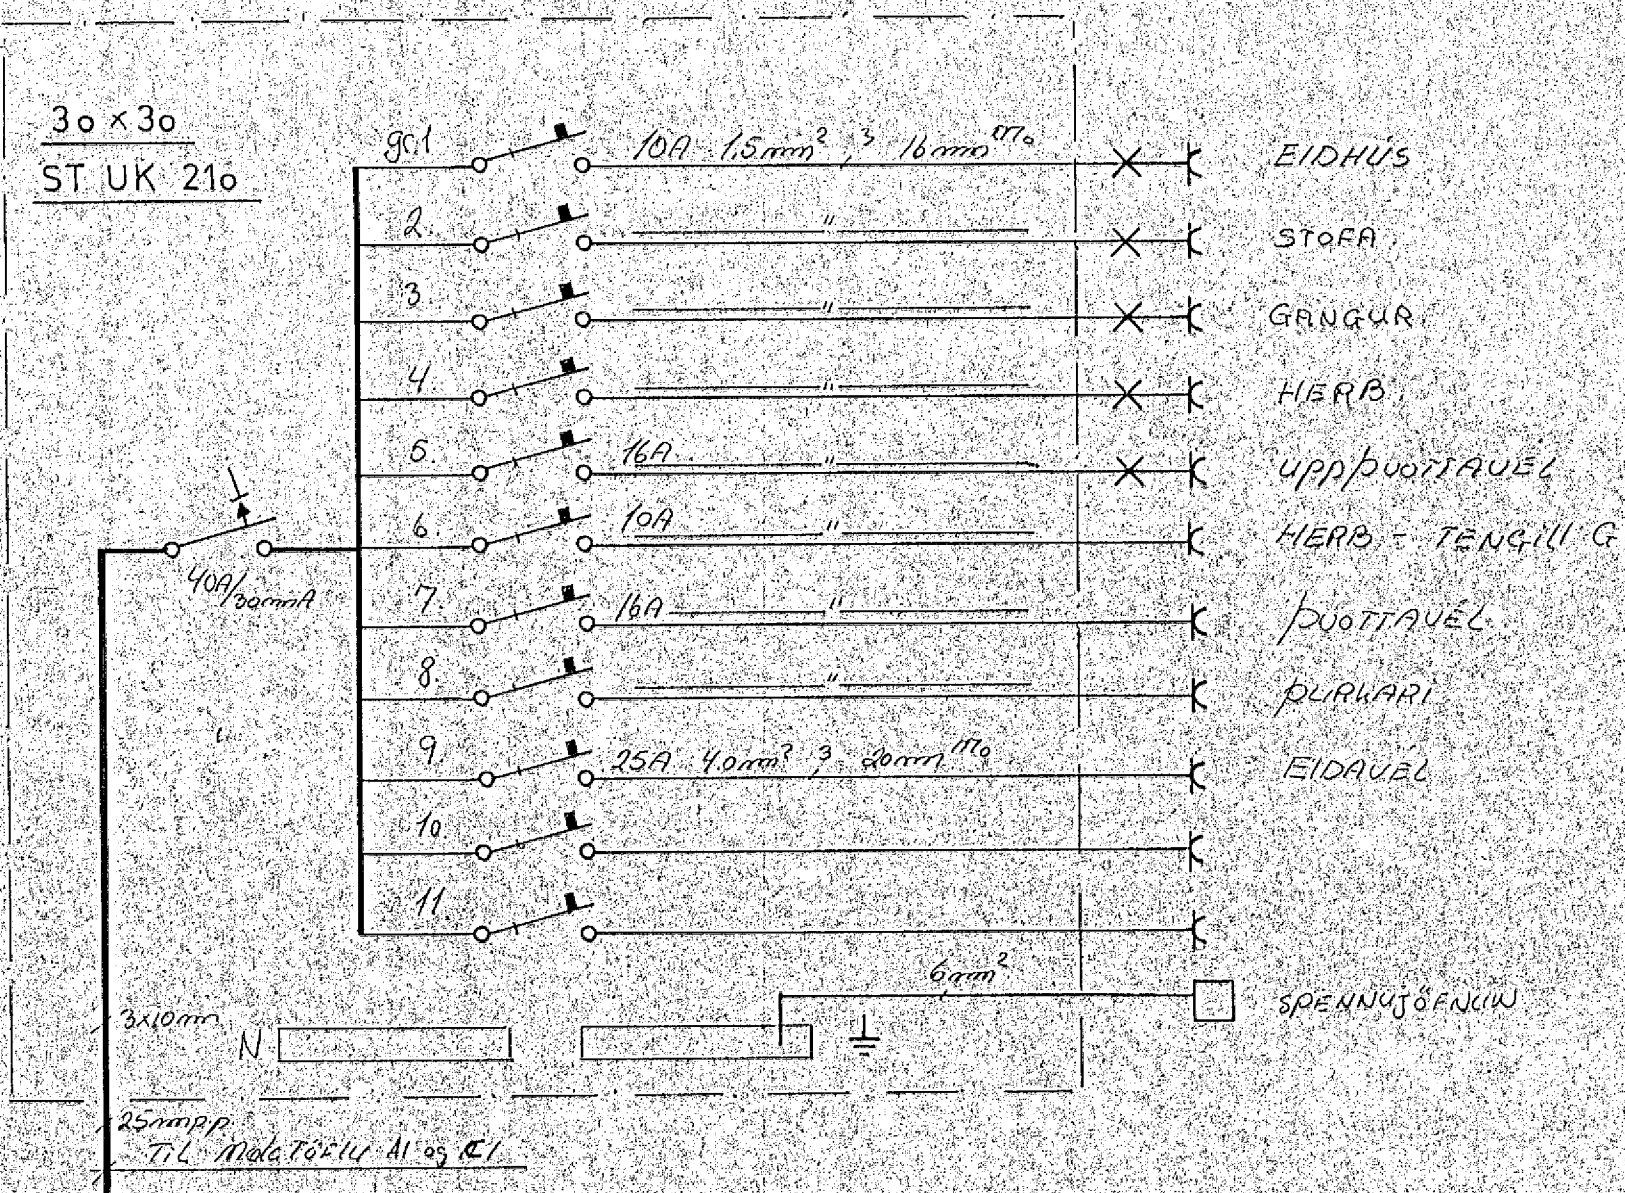 30 x 30
ST UK 210
gr.1 10A 1,5mm² , 3 , 16mm mo EIDHÚS
2. " STOFA.
3 " GANGUR.
4. " HERB.
5. 16A " UPPÞVOTTAVÉL
6. 10A " HERB - TENGILL G
7. 16A " ÞVOTTAVÉL
8. " ÞURKARI
9. 25A 4.0mm² , 3 , 20mm mo ELDAVÉL
10
11
40A/30mmA
6mm² SPENNUJÖFNUN
3x10mm
N
25mmpp
TIL MÆLATÖFLU A1 og C1